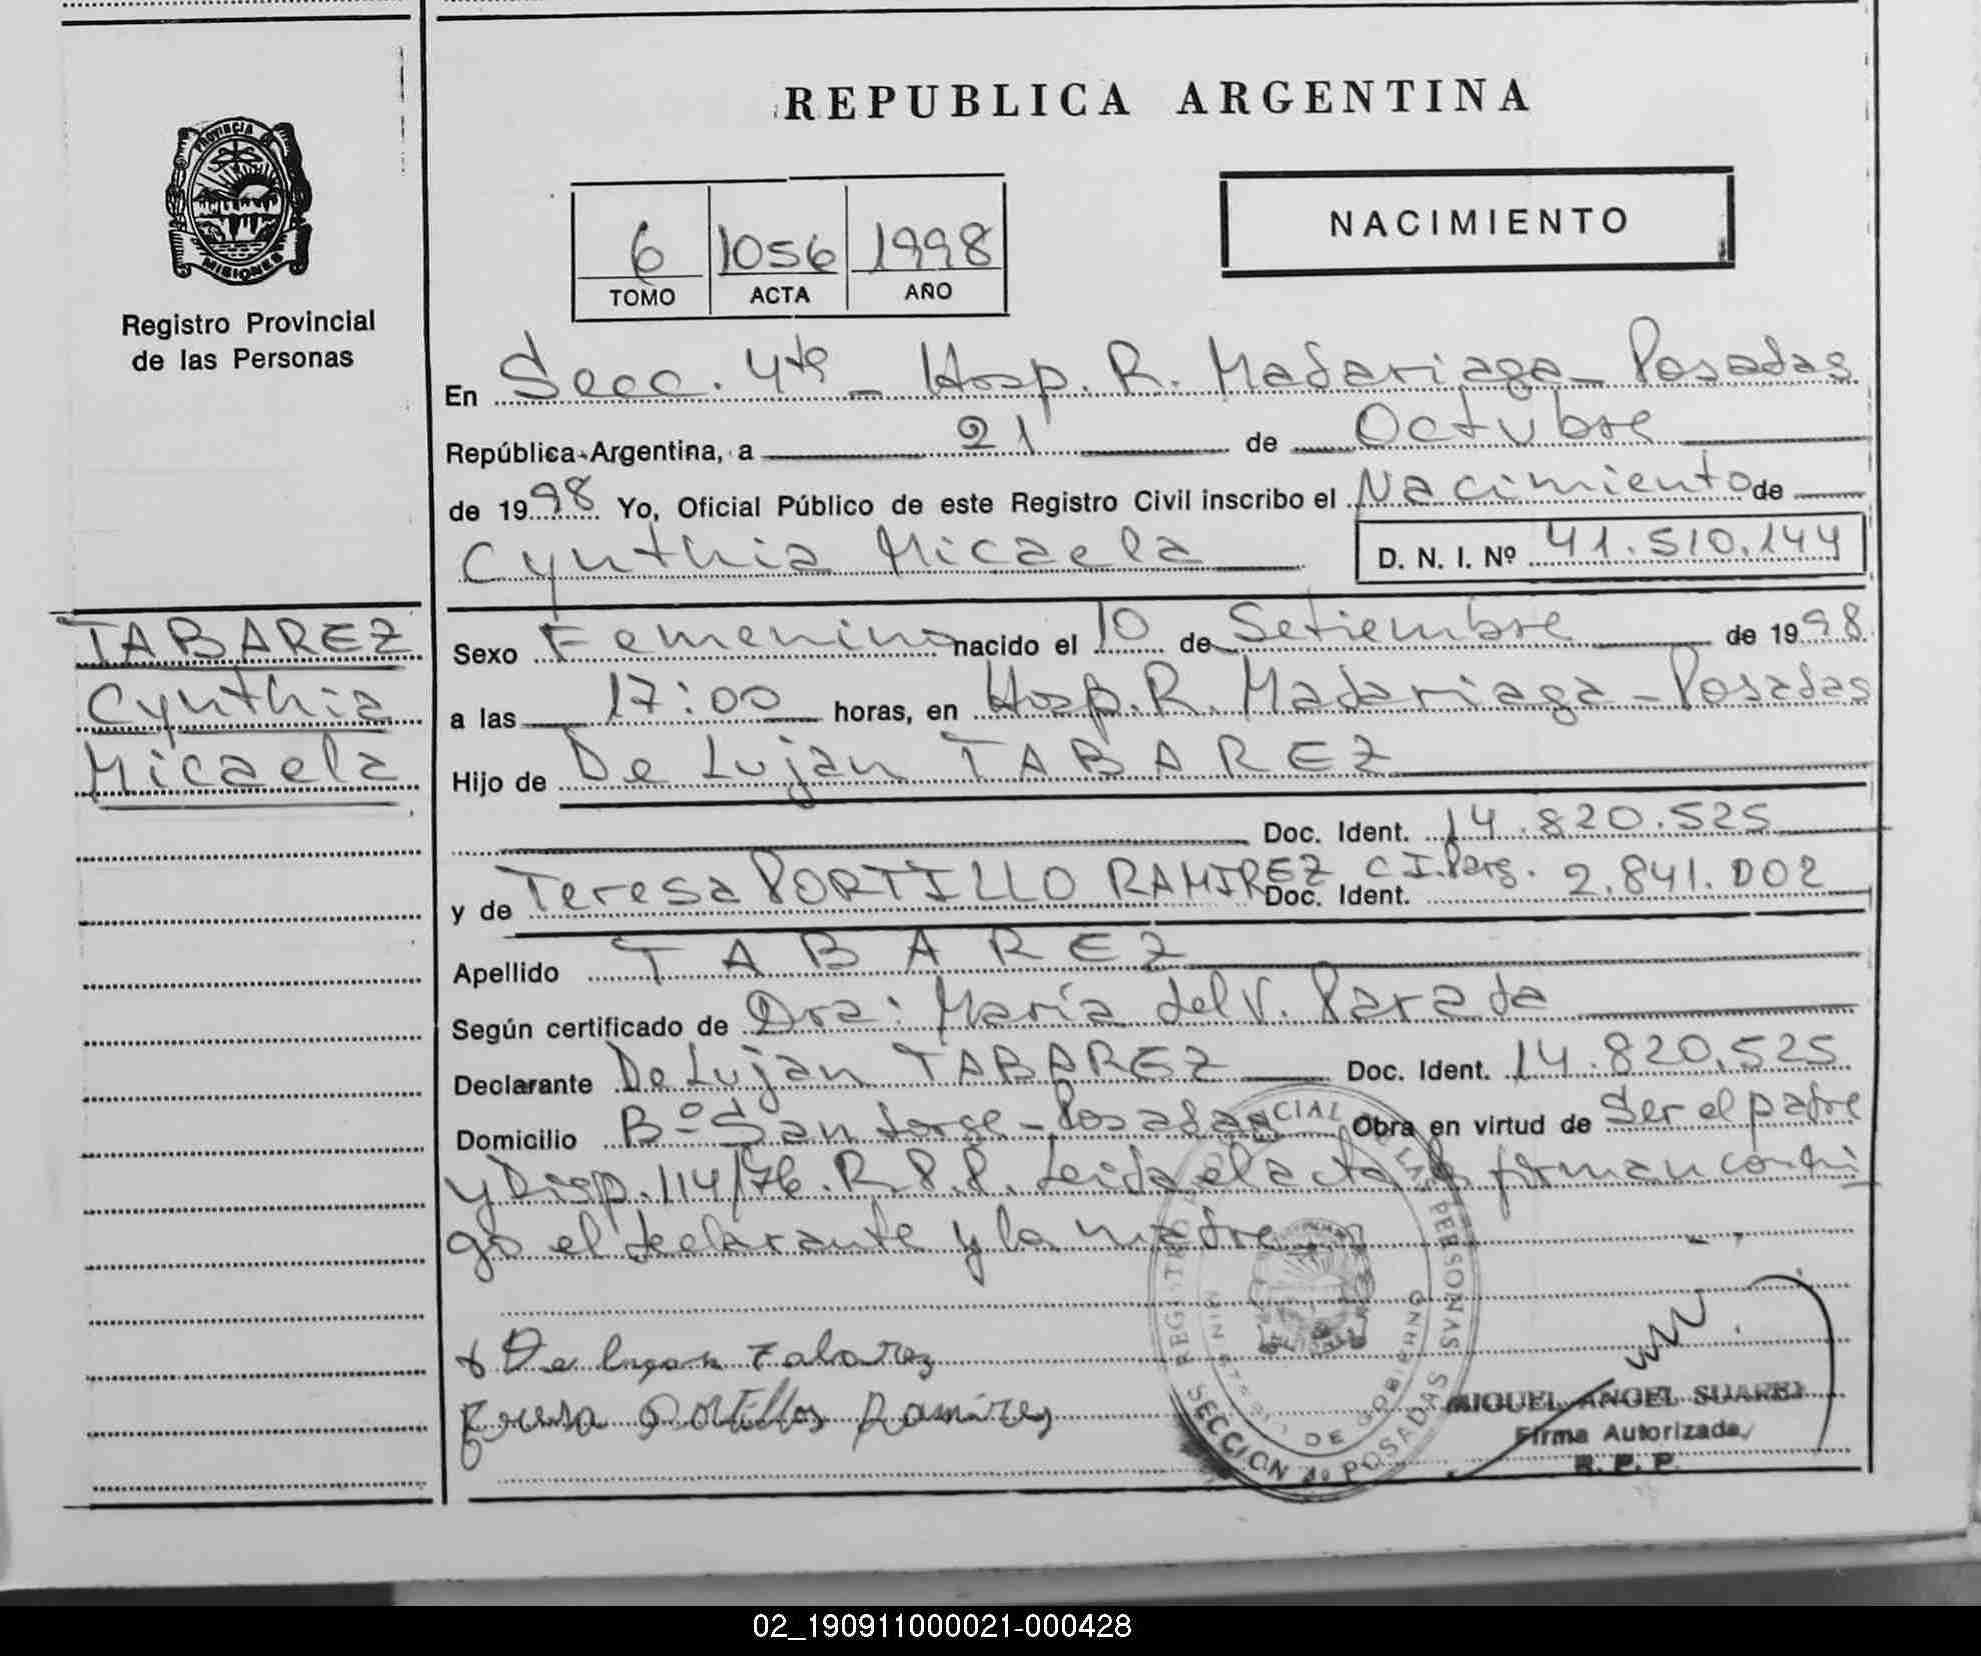 REPUBLICA ARGENTINA
PROVINCIA DE
MISIONES
Registro Provincial
de las Personas
6 1056 1998
TOMO ACTA AÑO
NACIMIENTO
En Secc. 4ta - Hosp. R. Madariaga - Posadas
República Argentina, a 21 de Octubre
de 1998 Yo, Oficial Público de este Registro Civil inscribo el Nacimiento de
Cynthia Micaela D. N. I. Nº 41.510.144
TABAREZ
Cynthia
Micaela
Sexo Femenino nacido el 10 de Setiembre de 1998
a las 17:00 horas, en Hosp. R. Madariaga - Posadas
Hijo de De Luján TABAREZ
Doc. Ident. 14.820.525
y de Teresa PORTILLO RAMIREZ Doc. Ident. C.I. Parg. 2.841.002
Apellido TABAREZ
Según certificado de Dra: María del V. Parada
Declarante De Luján TABAREZ Doc. Ident. 14.820.525
Domicilio Bº San Jorge - Posadas Obra en virtud de Ser el padre
y Disp. 114/76. R.P.P. Leida el acta firman conmi
go el declarante y la madre
De lujan Tabarez
Teresa Portillos Ramires
REGISTRO PROVINCIAL DE LAS PERSONAS
MINISTERIO DE GOBIERNO
SECCION 4º POSADAS
MIGUEL ANGEL SUAREZ
Firma Autorizada
R. P. P.
02_190911000021-000428